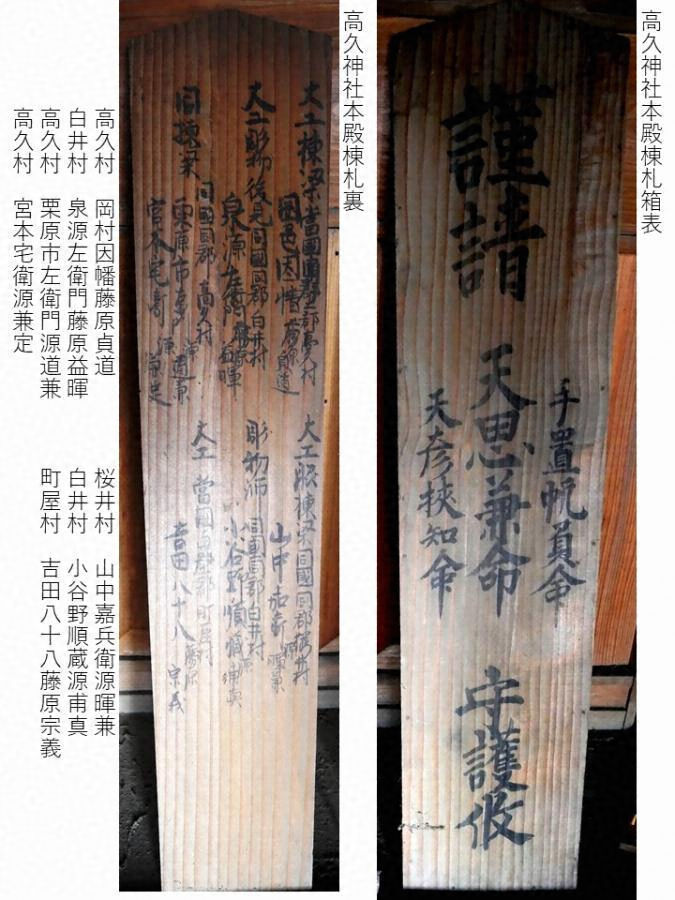 高久神社本殿棟札箱表
謹請
手置帆負命
天思兼命
天彦狭知命
守護攸
高久神社本殿棟札裏
大工棟梁當國同郡高久村
岡邑因幡藤原貞道
大工彫物後見同國同郡白井村
泉源左衛門藤原益暉
同棟梁
同國同郡高久村
栗原市左衛門源道兼
宮本宅衛源兼定
大工脇棟梁同國同郡桜井村
山中嘉兵衛源暉兼
彫物師同國同郡白井村
小谷野順蔵源甫真
大工當國同郡町屋村
吉田八十八藤原宗義
高久村 岡村因幡藤原貞道
白井村 泉源左衛門藤原益暉
高久村 栗原市左衛門源道兼
高久村 宮本宅衛源兼定
桜井村 山中嘉兵衛源暉兼
白井村 小谷野順蔵源甫真
町屋村 吉田八十八藤原宗義